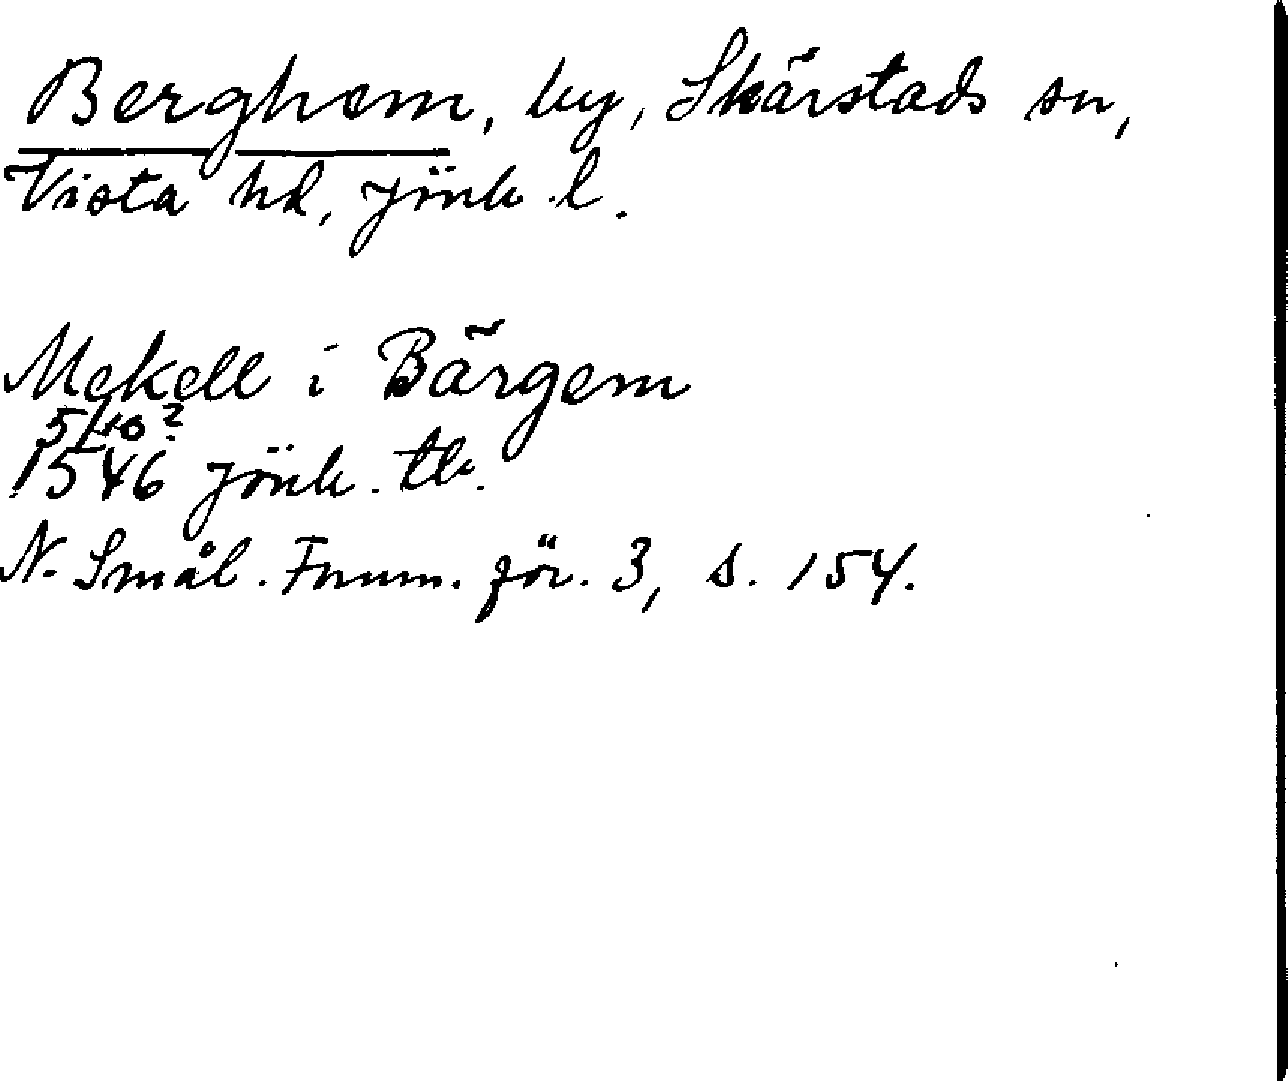 Berghem, by, Skärstads sn,
Vista hd, Jönk. l.
Mekell i Bärgem
5/10?
1546 Jönk. tb.
N. Smål. Fnum. för. 3, s. 154.